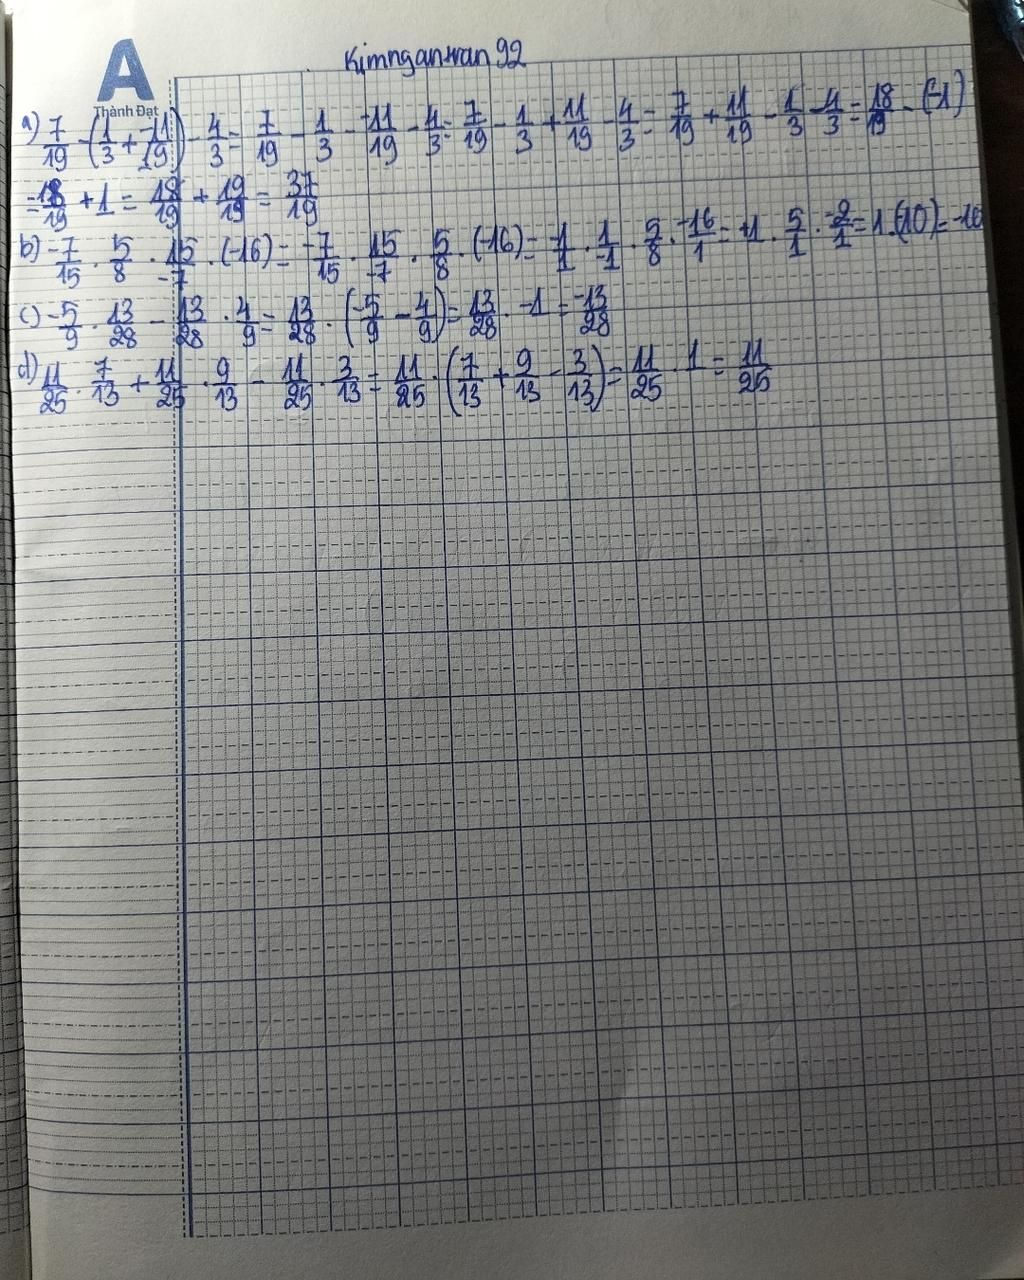 Kimngantran92
A
Thành Đạt
a) 7/19 - (1/3 + -11/19) - 4/3 = 7/19 - 1/3 - -11/19 - 4/3 = 7/19 - 1/3 + 11/19 - 4/3 = 7/19 + 11/19 - 1/3 - 4/3 = 18/19 - (-1)
= 18/19 + 1 = 18/19 + 19/19 = 37/19
b) -7/15 . 5/8 . 15/-7 . (-16) = -7/15 . 15/-7 . 5/8 . (-16) = -1/1 . 1/-1 . 5/8 . -16/1 = 1 . 5/1 . -2/1 = 1.(10) = -10
c) -5/9 . 13/28 - 13/28 . 4/9 = 13/28 . (-5/9 - 4/9) = 13/28 . -1 = -13/28
d) 11/25 . 7/13 + 11/25 . 9/13 - 11/25 . 3/13 = 11/25 . (7/13 + 9/13 - 3/13) = 11/25 . 1 = 11/25